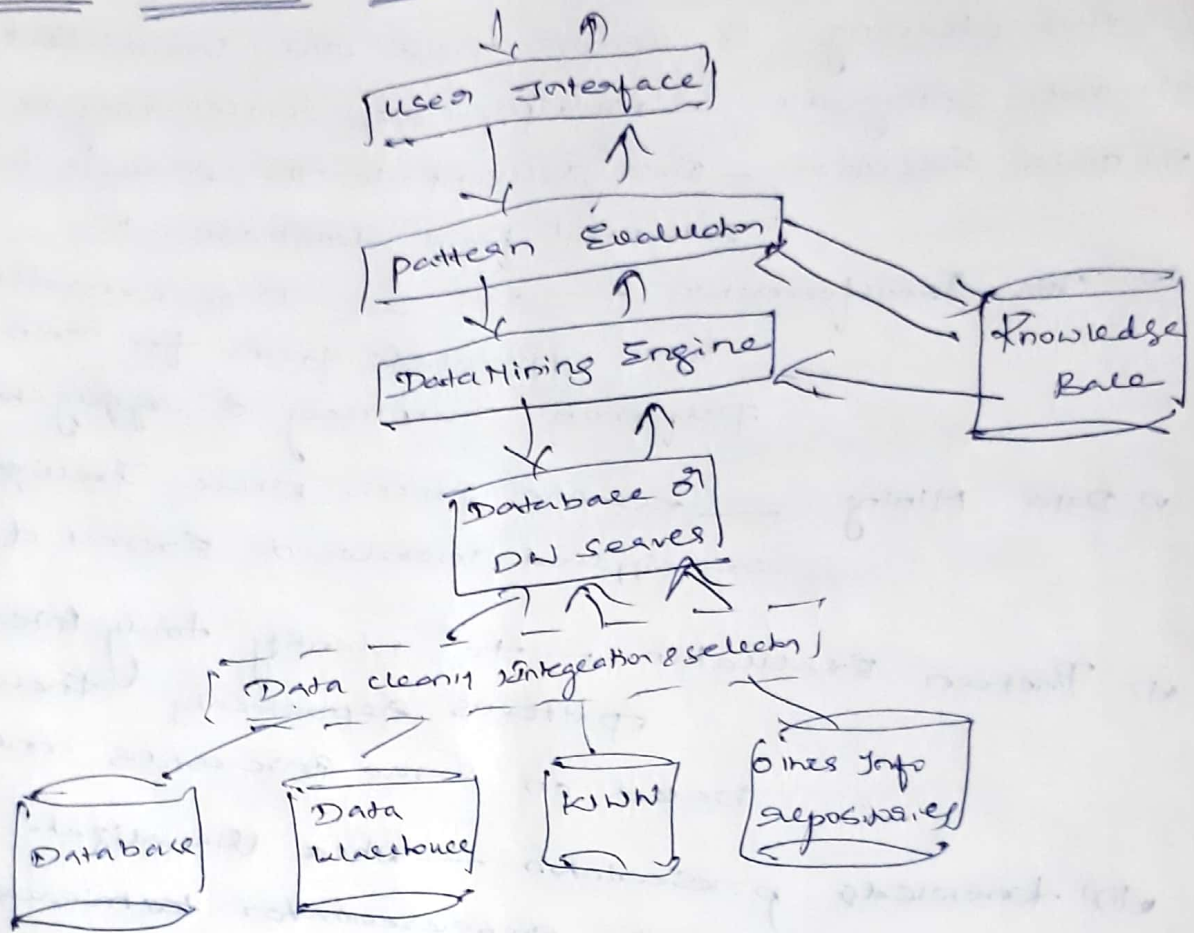 User Interface
Pattern Evaluator
Data Mining Engine
Knowledge
Base
Database or
DW Server
Data cleaning, Integration & selection
Database
Data
Warehouse
WWW
Other Info
repositories